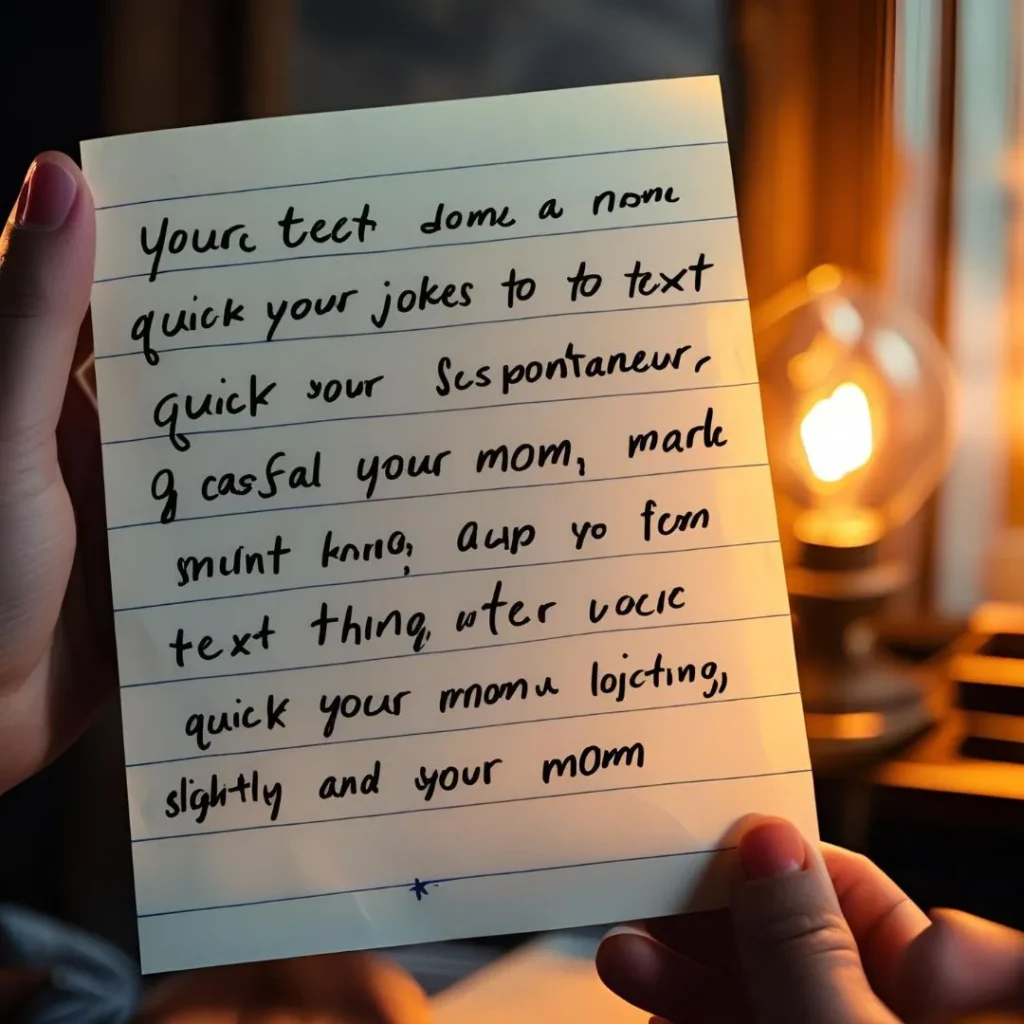 your tect dome a nome
quick your jokes to to text
quick your Scspontaneur,
g casfal your mom, mark
text thing, uter vocic
quick your momu lojcting,
slightly and your mom